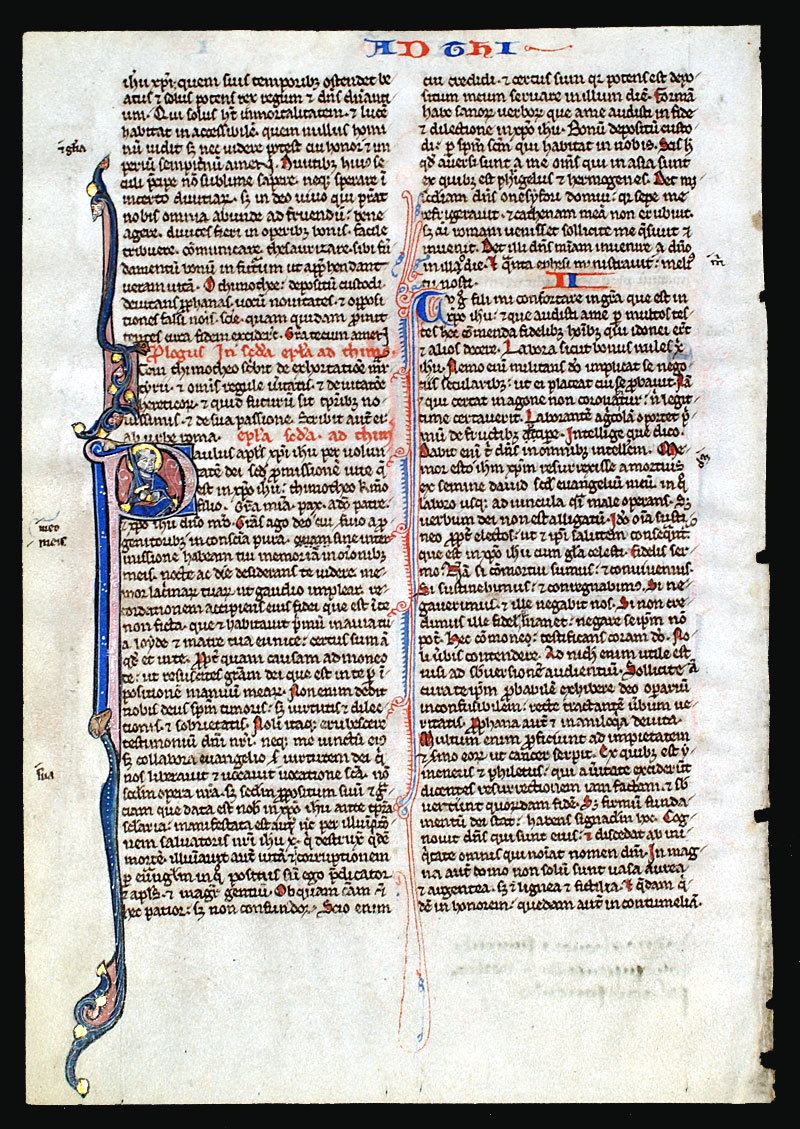 AD ThI
ihu xpi. quem suis temporibꝫ ostendet be
atus & solus potens rex regum & dns dnanti
um. Qui solus ht immortalitatem. & luce
habitat in accessibilē. quem nullus homi
nū uidit sꝫ nec uidere potest cui honor & im
periū sempitnū amen. Diuitibꝫ huiꝰ se
culi precipe nō sublime sapere. neqꝫ sperare ī
incerto diuitiarꝝ. sꝫ in deo uiuo qui prestat
nobis omnia abunde ad fruendū. bene
agere. diuites fieri in operibꝫ bonis. facile
tribuere. cōmunicare. thesaurizare sibi fū
damentū bonū in futurum ut apprehendant
ueram uitā. O thimothee depositū custodi
deuitans prophanas uocū nouitates. & opposi
tiones falsi nois scie. quam quidam promit
tentes circa fidem exciderūt. Gra tecum amen.
Plogus In scda epla ad thimo.
Item thimotheo scribit de exhortatiōe mar
tyrii. & omnis regule ueritatis. & de uitatōe
hereticorꝝ. & quid futurū sit tpribꝫ no
uissimis. & de sua passione. Scribit autē ei
ab urbe roma. epla scda. ad thim
Paulus apls xpi ihu per volun
tatē dei scdm promissionē uite q̄
est in xpo ihu. thimotheo kmo
filio. Gra mia. pax. a dō patre.
& xpo ihu dno nrō. Gras ago deo cui seruio a p
genitoribꝫ in conscia pura. quam sine inter
missione habeam tui memoriā in orōnibꝫ
meis. nocte ac die desiderans te uidere me
mor lacrimarꝝ tuarꝝ ut gaudio implear. re
cordationem accipiens eius fidei que est ī te
non ficta. que & habitauit primū in auia tu
a loyde & matre tua eunice. certus sum ā
qd & in te. Propt quam causam admoneo
te. ut resuscites gram dei que est in te p i
positionē manuū mearꝝ. Non enim dedit
nobis deus spm timoris. sꝫ uirtutis & dilec
tionis. & sobrietatis. Noli itaqꝫ erubescere
testimoniū dni nri. neqꝫ me uinctū eiꝰ
sꝫ collabora euangelio scdm uirtutem dei q
nos liberauit & uocauit uocatione sca. nō
scdm opera nra. sꝫ scdm propositum suū & g
ciam que data est nob in xpo ihu ante tpra
sclaria. manifestata est autē nc per illuiatō
nem saluatoris nri ihu x. q destruxit qdē
mortē. illuiauit autē uitā & icorruptionem
p euglm in q positus sum ego predicator
& apls. & magr gentiū. Ob quam cām & ī
hec patior. sꝫ non confundor. Scio enim
cui credidi. & certus sum qr potens est depo
situm meum seruare in illum diē. Formā
habe sanorꝝ uerborꝝ que a me audisti in fide
& dilectione in xpo ihu. Bonū depositū custo
di. p spm scm qui habitat in nobis. Scis h
qd auersi sunt a me oms qui in asia sunt
ex quibꝫ est phigelus & hermogenes. Det mi
scdiam dns onesyfori domui. qi sepe me
refrigerauit. & cathenam meā non erubuit.
sꝫ cū romam uenisset sollicite me quisiuit &
inuenit. Det illi dns miam inuenire a dno
in illa die. & qnta ephesi ministrauit. meliꝰ
tu nosti. II
Tu g fili mi confortare in gra que est in
xpo ihu. & que audisti a me p multos tes
tes hec cōmenda fidelibꝫ hoibꝫ. qui idonei erūt
& alios docere. Labora sicut bonus miles x
ihu. Nemo enī militans dō implicat se nego
tiis secularibꝫ. ut ei placeat cui se probauit. Nā
& qui certat in agone non coronatur. n legit
time certauerit. Laborantē agcolā oportet p
mū de fructibꝫ accipe. Intellige que dico.
Dabit enī t dns in omnibꝫ intellem. Me
mor esto ihm xpm resurrexisse a mortuis
ex semine dauid scdm euangeliū meū. in q
laboro usqꝫ ad uincula qsi male operans. Sꝫ
uerbum dei non est alligatū. Ido oia susti
neo propt electos. ut & ipi salutem consequnt.
que est in xpo ihu cum gla celesti. Fidelis ser
mo. Nā si cōmortui sumus. & conuiuemus.
Si sustinebimus. & conregnabimꝰ. Si ne
gauerimus. & ille negabit nos. Si non cre
dimus ille fidelis manet. negare seipm nō
pot. Hec cōmoneo. testificans coram dō. No
li uerbis contendere. Ad nich enim utile est
nisi ad sbuersionē audientiū. Sollicite ā
cura teipm probabilē exhibere deo operariū
inconfusibilem. recte tractantē uerbum ue
ritatis. Prophana autē & inaniloqa deuita.
Multum enim proficiunt ad impietatem
& smo eorꝝ ut cancer serpit. Ex quibꝫ est y
meneus & philetus. qui a ueritate exciderūt
dicentes resurrectionem iam factam. & sb
uertunt quordam fidē. Sꝫ firmū funda
mentū dei stat. habens signadm hoc. Cog
nouit dns qui sunt eius. & discedat ab ini
qtate omnis qui noiat nomen dni. In mag
na autē domo non solū sunt uasa aurea
& argentea. sꝫ & lignea & fictilia. & qdam q
dē in honorem. quedam autē in contumeliā.
meo
meis
sua